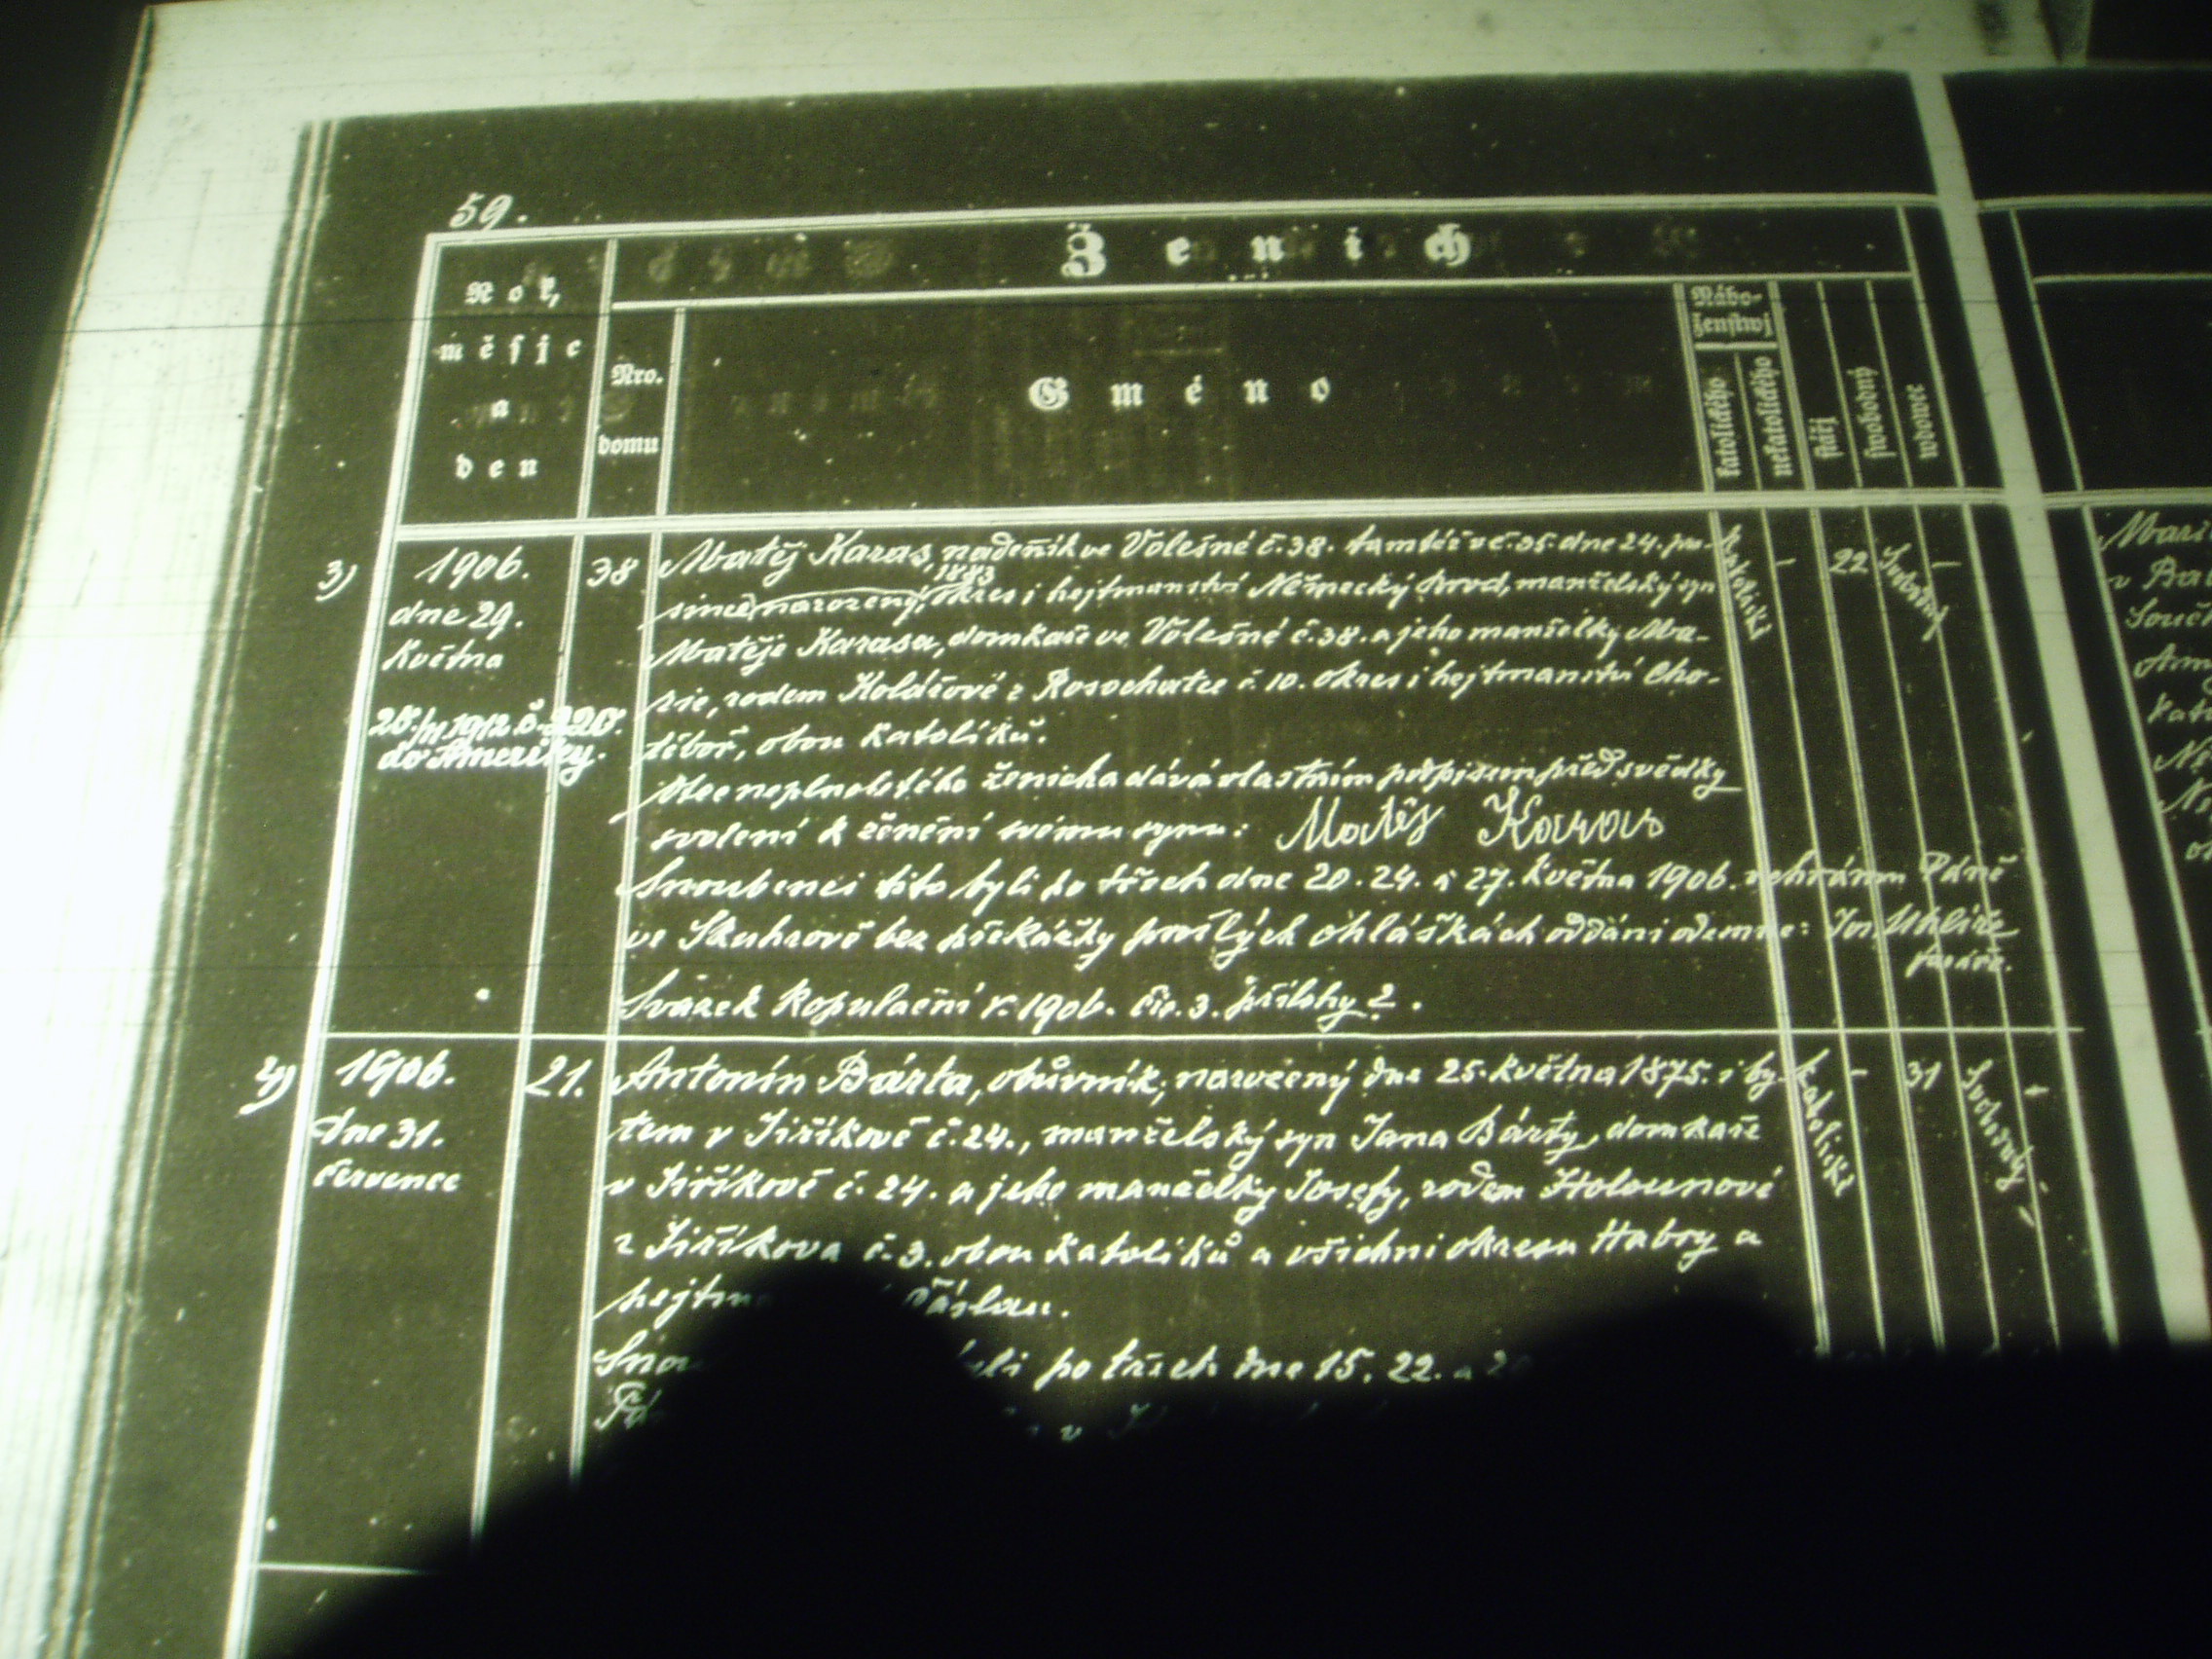 59.
Ženich
Rok,
měsjc
a
den
Nro.
domu
Gméno
Nábo-
ženstwj
katolického
nekatolického
stářj
swobodný
wdowec
3)
1906.
dne 29.
Května
28./II 1912 č.
do Ameriky.
38
Matěj Karas, nádeník ve Volešné č. 38. tamtéž v č. 35. dne 24. pro-
1883
since narozený, okres i hejtmanství Německý Brod, manželský syn
Matěje Karasa, domkaře ve Volešné č. 38. a jeho manželky Ma-
rie, rodem Kolářové z Rosochatce č. 10. okres i hejtmanství Cho-
těboř, obou katolíků.
Otec neplnoletého ženicha dává vlastním podpisem před svědky
svolení k ženění svému synu: Matěj Karas
Snoubenci tito byli po třech dne 20. 24. a 27. května 1906. v chrámu Páně
ve Skuhrově bez překážky prošlých ohláškách oddáni odemne: Jos. Uhlíře
faráře.
Svazek kopulační r. 1906. čís. 3. přílohy 2.
katolické
-
22
Svobodný
-
4)
1906.
dne 31.
července
21.
Antonín Bárta, obůvník, narozený dne 25. května 1875. i by-
tem v Jiříkově č. 24., manželský syn Jana Bárty, domkaře
v Jiříkově č. 24. a jeho manželky Josefy, rodem Holounové
z Jiříkova č. 3. obou katolíků a všichni okresu Habry a
Čáslau.
po třech dne 15. 22. a
katolické
-
31
Svobodný
-